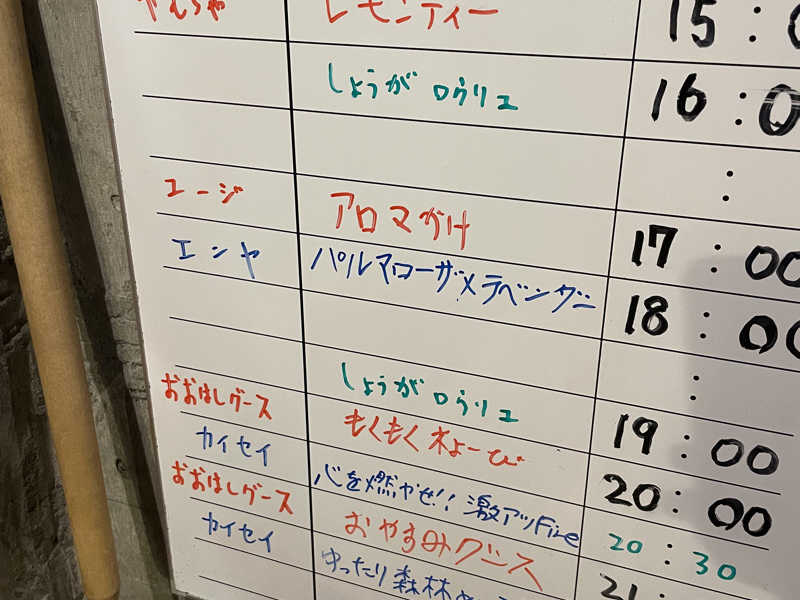 レモンティー 15:0
しょうが ロウリュ 16:0
:
エージ アロマがけ 17:00
エンヤ パルマローザ×ラベンダー 18:00
:
しょうが ロウリュ 19:00
おおはしグース もくもくねょーび 20:00
カイセイ 心を燃やせ!! 激アツFire
おおはしグース おやすみグース 20:30
カイセイ ゆったり森林 21: